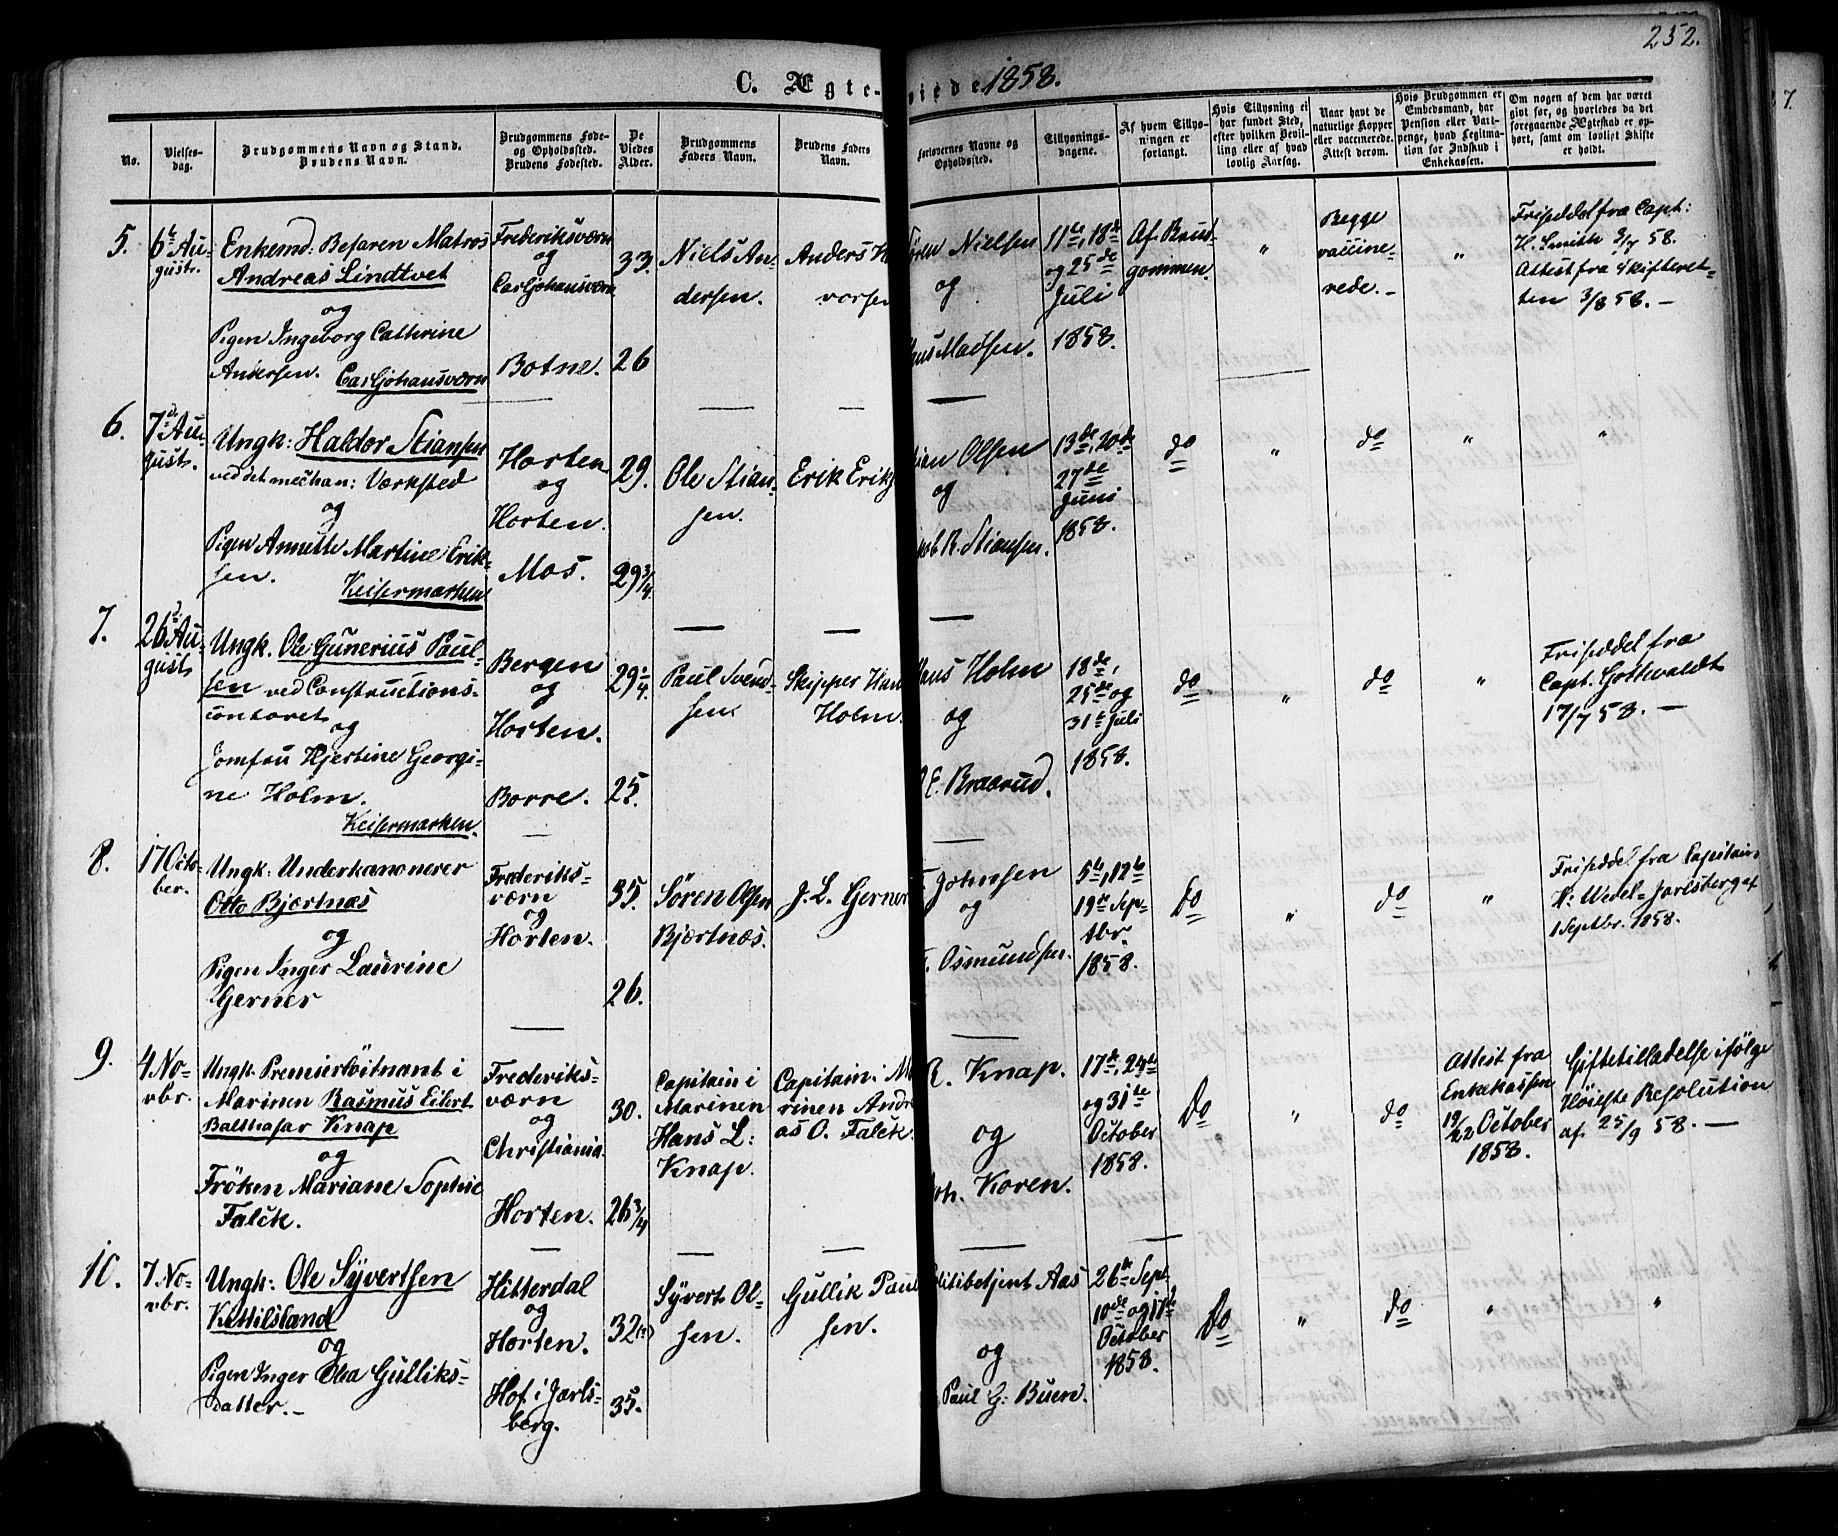 252.
C. Ægte-viede 1858.
No.
Vielses-
dag.
Brudgommens Navn og Stand.
Brudens Navn.
Brudgommens Føde-
og Opholdssted.
Brudens Fødested.
De
Viedes
Alder.
Brudgommens
Faders Navn.
Brudens Faders
Navn.
Forlovernes Navne og
Opholdssted.
Tillysnings-
dagene.
Af hvem Tillys-
ningen er
forlangt.
Hvis Tillysning ei
har fundet Sted,
efter hvilken Bevil-
ling eller af hvad
lovlig Aarsag.
Naar havt de
naturlige Kopper
eller vaccinerede.
Attest derom.
Hvis Brudgommen er
Embedsmand, har
Pension eller Vart-
penge, hvad Legitima-
tion for Indskud i
Enkekassen.
Om nogen af dem har været
gift før, og hvorledes da det
foregaaende Ægteskab er op-
hørt, samt om lovligt Skifte
er holdt.
5.
6te Au-
gust.
Enkemd: Befaren Matros
Andreas Lindtvet
og
Pigen Ingeborg Catherine
Andersen. Carljohansværn
Frederiksværn
og
Carljohansværn
Botne.
33.
26
Niels An-
dersen.
Anders H
vorsen
ören Nielsen
og
hus Madsen.
11te, 18de
og 25de
Juli
1858.
Af Brud-
gommen.
"
Begge
vaccine-
rede. -
"
Friseddel fra Capt:
H. Smith 3/7 58.
Attest fra Skifteret-
ten 3/8 58. -
6.
7de Au-
gust.
Ungk: Haldor Stiansen
ved det mechan: Værksted
og
Pigen Annette Martine Erik-
sen.
Keisermarken
Horten
og
Horten.
Mos.
29.
29 3/4.
Ole Stian-
sen.
Erik Eriks
tian Olsen
og
ob R. Stiansen.
13de, 20de
27de
Juni
1858.
do
"
do
"
"
7.
26de Au-
gust
Ungk. Ole Gunerius Paul-
sen ved Constructions-
contoret
og
Jomfru Hjertine Georgi-
ne Holm.
Keisermarken.
Bergen
og
Horten.
Borre.
29 1/4.
25.
Paul Svend-
sen.
Skipper Han
Holm.
Hans Holm
og
E. Braarud.
18de,
25de og
31te Juli
1858.
do
"
do
"
Friseddel fra
Capt. Gottwaldt
17/7 58. -
8.
17 Octo-
ber.
Ungk: Underkanonerer
Otto Bjærtnæs
og
Pigen Inger Laurine
Gerner
Frederiks-
værn
og
Horten.
35.
26.
Sören Olsen
Bjærtnæs.
J. L. Gerner
Johnsen
og
Osmundsen.
5te, 12te
19de Sep-
tbr.
1858.
do
"
do
"
Friseddel fra Capitain
H: Wedel-Jarlsberg af
1 Septbr. 1858.
9.
4 No-
vbr.
Ungk. Premierlöitnant i
Marinen Rasmus Eilert
Balthasar Knap
og
Fröken Mariane Sophie
Falck.
Frederiks-
værn
og
Christiania.
Horten.
30.
26 3/4
Capitain i
Marinen
Hans L:
Knap.
Capitain i Ma
rinen Andre
as O. Falck.
R. Knap.
og
oh. Koren.
17de, 24de
og 31te
October
1858.
do
"
do
Attest fra
Enkekassen
19/22 October
1858.
Giftetilladelse ifölge
Höieste Resolution
af 25/9 58. -
10.
7 No-
vbr.
Ungk: Ole Syvertsen
Kittilsland
og
Pigen Inger Olea Gulliks-
datter. -
Hitterdal
og
Horten.
Hof i Jarls-
berg.
32
35.
Syvert Ol-
sen.
Gullik Paul
sen.
olitibetjent Aas
og
Paul G. Buen.
26de Sept
10de og 17de
October
1858.
do
"
do
"
"